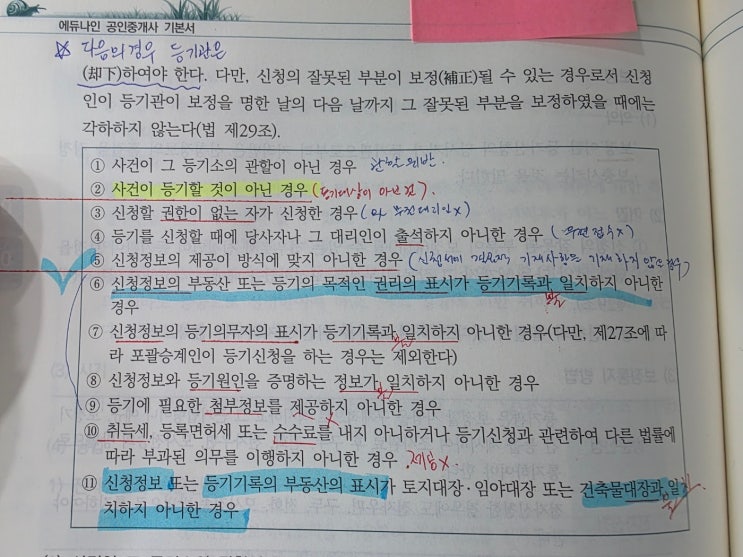 에듀나인 공인중개사 기본서
☆ 다음의 경우 등기관은
(却下)하여야 한다. 다만, 신청의 잘못된 부분이 보정(補正)될 수 있는 경우로서 신청
인이 등기관이 보정을 명한 날의 다음 날까지 그 잘못된 부분을 보정하였을 때에는
각하하지 않는다(법 제29조).
① 사건이 그 등기소의 관할이 아닌 경우 관할위반.
② 사건이 등기할 것이 아닌 경우 (등기대상이 아닌 것).
③ 신청할 권한이 없는 자가 신청한 경우 (무권대리인x)
④ 등기를 신청할 때에 당사자나 그 대리인이 출석하지 아니한 경우 (우편접수x)
⑤ 신청정보의 제공이 방식에 맞지 아니한 경우 (신청서에 기재사항을 기재하지 않은 경우)
⑥ 신청정보의 부동산 또는 등기의 목적인 권리의 표시가 등기기록과 일치하지 아니한
경우
⑦ 신청정보의 등기의무자의 표시가 등기기록과 일치하지 아니한 경우(다만, 제27조에 따
라 포괄승계인이 등기신청을 하는 경우는 제외한다)
⑧ 신청정보와 등기원인을 증명하는 정보가 일치하지 아니한 경우
⑨ 등기에 필요한 첨부정보를 제공하지 아니한 경우
⑩ 취득세, 등록면허세 또는 수수료를 내지 아니하거나 등기신청과 관련하여 다른 법률에
따라 부과된 의무를 이행하지 아니한 경우
⑪ 신청정보 또는 등기기록의 부동산의 표시가 토지대장·임야대장 또는 건축물대장과 일
치하지 아니한 경우